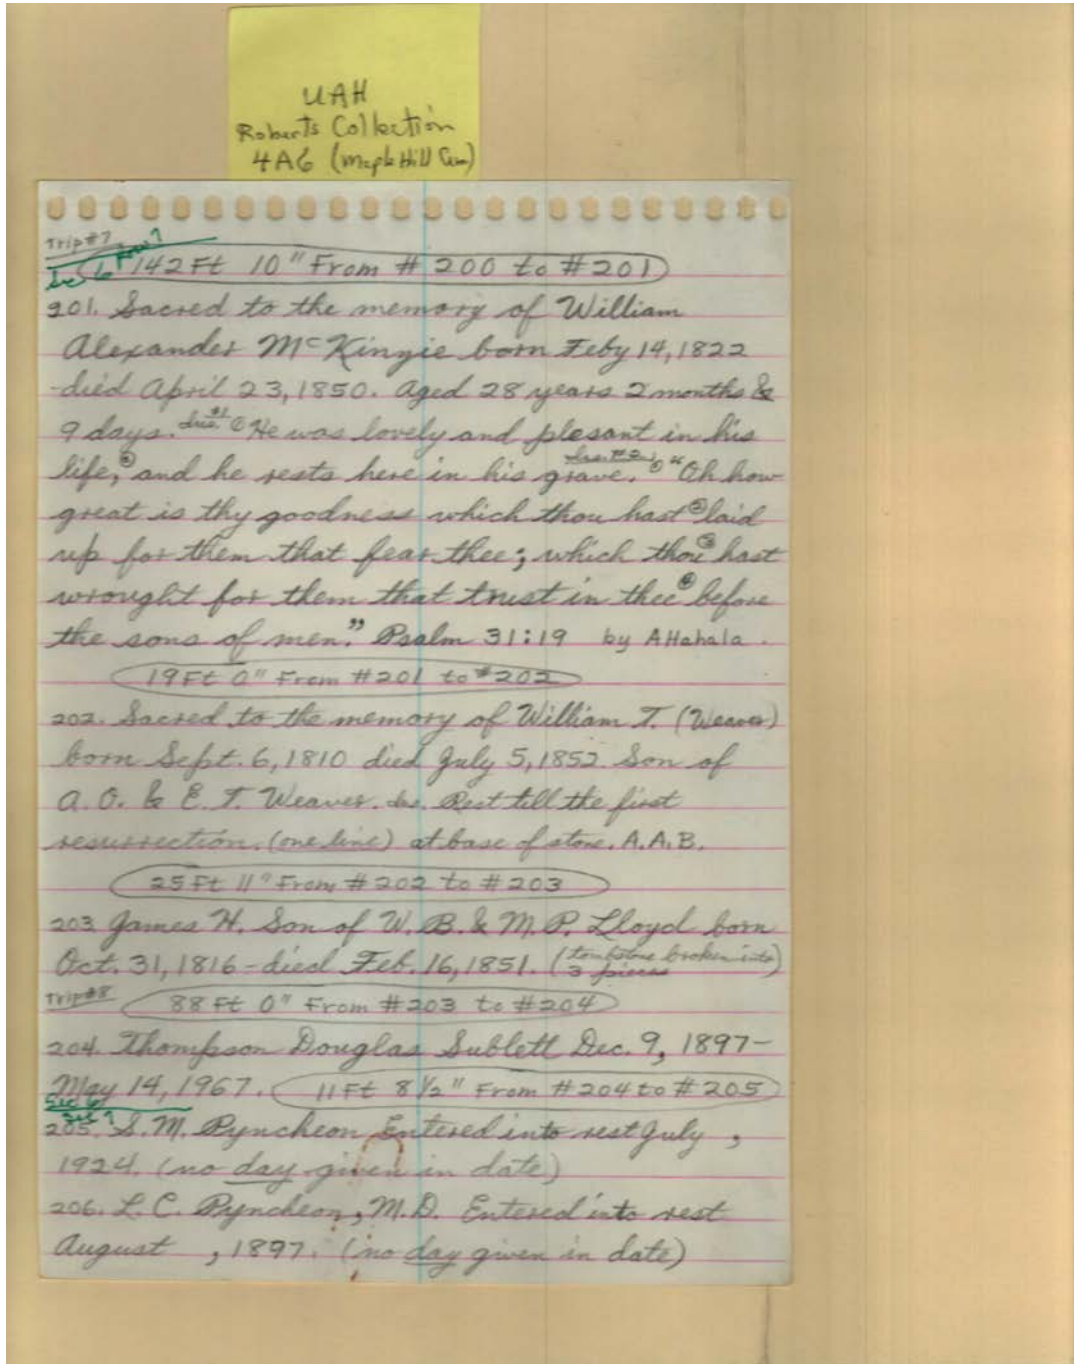 UAH
Roberts Collection
4A6 (Maple Hill Cem)
Trip #7
Sec 6 Row 7
142 Ft 10" From # 200 to # 201
201. Sacred to the memory of William
Alexander McKinzie born Feby 14, 1822
died April 23, 1850. Aged 28 years 2 months &
9 days. ins. #1 ① He was lovely and plesant in his
life, ② and he rests here in his grave. ins. #2 ① "Oh how
great is thy goodness which thou hast ② laid
up for them that fear thee; which thou ③ hast
wrought for them that trust in thee ④ before
the sons of men." Psalm 31:19 by AHahala.
19 Ft 0" From #201 to #202
202. Sacred to the memory of William T. (Weaver)
born Sept. 6, 1810 died July 5, 1852. Son of
A. O. & E. T. Weaver. ins. Rest till the first
resurrection. (one line) at base of stone. A.A.B.
25 Ft 11" From # 202 to # 203
203 James H. Son of W. B. & M. P. Lloyd born
Oct. 31, 1816 - died Feb. 16, 1851. (tombstone broken into
3 pieces)
Trip #8
88 Ft 0" From #203 to #204
204. Thompson Douglas Sublett Dec. 9, 1897-
May 14, 1967. 11 Ft 8 1/2" From #204 to #205
Sec 6
205. S. M. Pyncheon Entered into rest July ,
1924. (no day given in date)
206. L. C. Pyncheon, M.D. Entered into rest
August , 1897. (no day given in date)